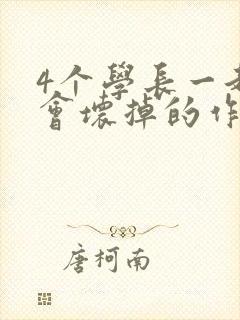 4个學長一
會壞掉的作
唐柯南